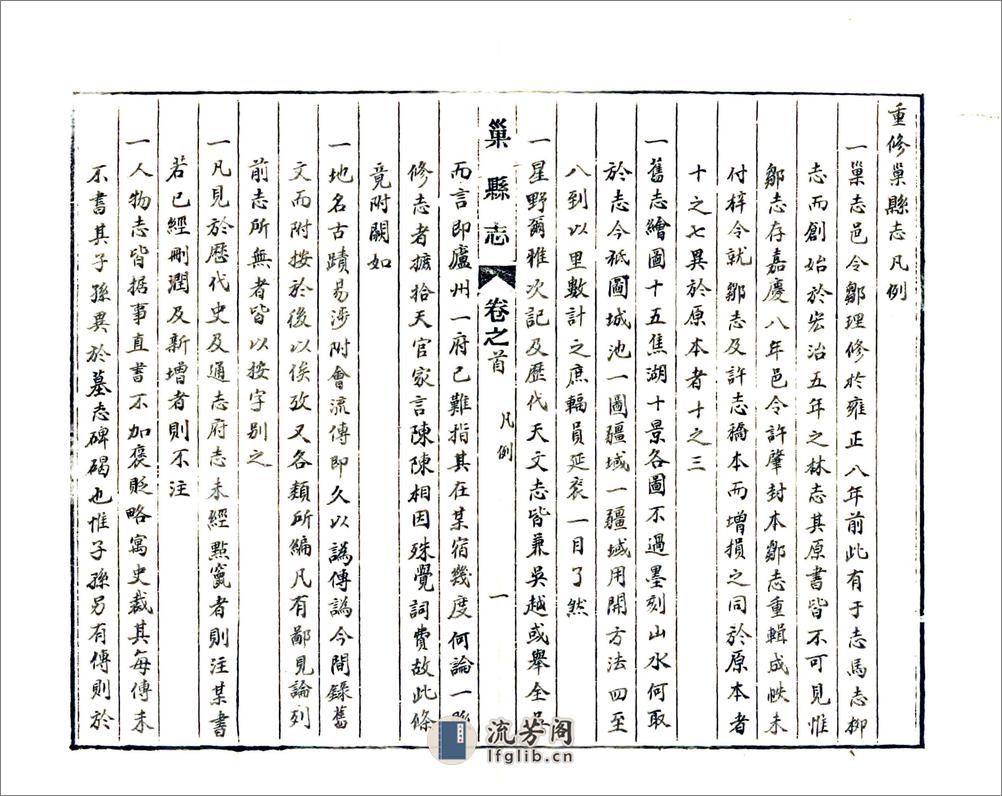 重修巢縣志凡例
一巢志邑令鄒理修於雍正八年前此有于志馬志柳
志而創始於宏治五年之林志其原書皆不可見惟
鄒志存嘉慶八年邑令許肇封本鄒志重輯成帙未
付梓今就鄒志及許志稿本而增損之同於原本者
十之七異於原本者十之三
一舊志繪圖十五焦湖十景各圖不過墨刻山水何取
於志今祇圖城池一圖疆域一疆域用開方法四至
八到以里數計之庶輻員延袤一目了然
一星野爾雅次記及歷代天文志皆兼吳越或舉全吳
而言即廬州一府已難指其在某宿幾度何論一縣
修志者摭拾天官家言陳陳相因殊覺詞費故此條
竟附闕如
一地名古蹟易涉附會流傳即久以譌傳譌今間錄舊
文而附按於後以俟攷又各類所編凡有鄙見論列
前志所無者皆以按字別之
一凡見於歷代史及通志府志未經點竄者則注某書
若已經刪潤及新增者則不注
一人物志皆据事直書不加褒貶略寓史裁其每傳末
不書其子孫異於墓志碑碣也惟子孫另有傳則於
巢縣志 卷之首 凡例 一
流芳阁
lfglib.cn